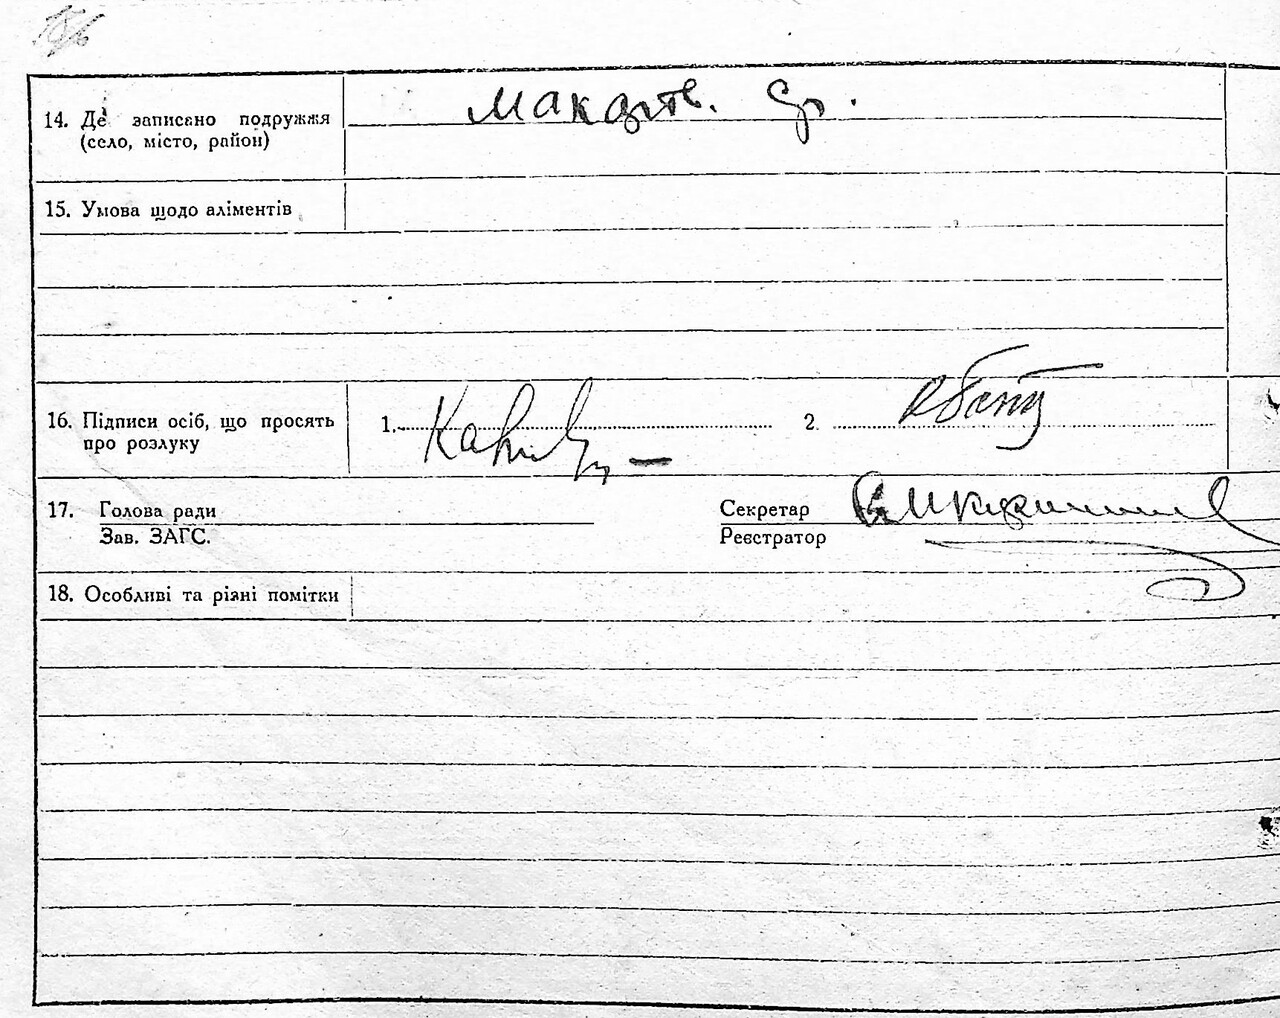 14. Де записано подружжя
(село, місто, район)
15. Умова щодо аліментів
16. Підписи осіб, що просять
про розлуку
1.
2.
17. Голова ради
Зав. ЗАГС.
Секретар
Реєстратор
18. Особливі та різні помітки